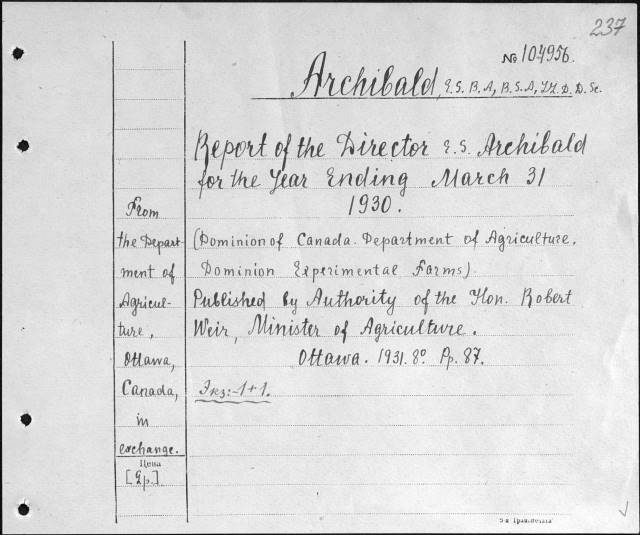 237
№ 104956.
Archibald, E.S. B.A, B.S.A, LL.D. D.Sc.
Report of the Director E.S. Archibald
for the Year Ending March 31
1930.
(Dominion of Canada. Department of Agriculture.
Dominion Experimental Farms)
Published by Authority of the Hon. Robert
Weir, Minister of Agriculture.
Ottawa. 1931. 8° Pp. 87.
Экз:-1+1.
From
the Depart-
ment of
Agricul-
ture,
Ottawa,
Canada,
in
exchange.
Цена